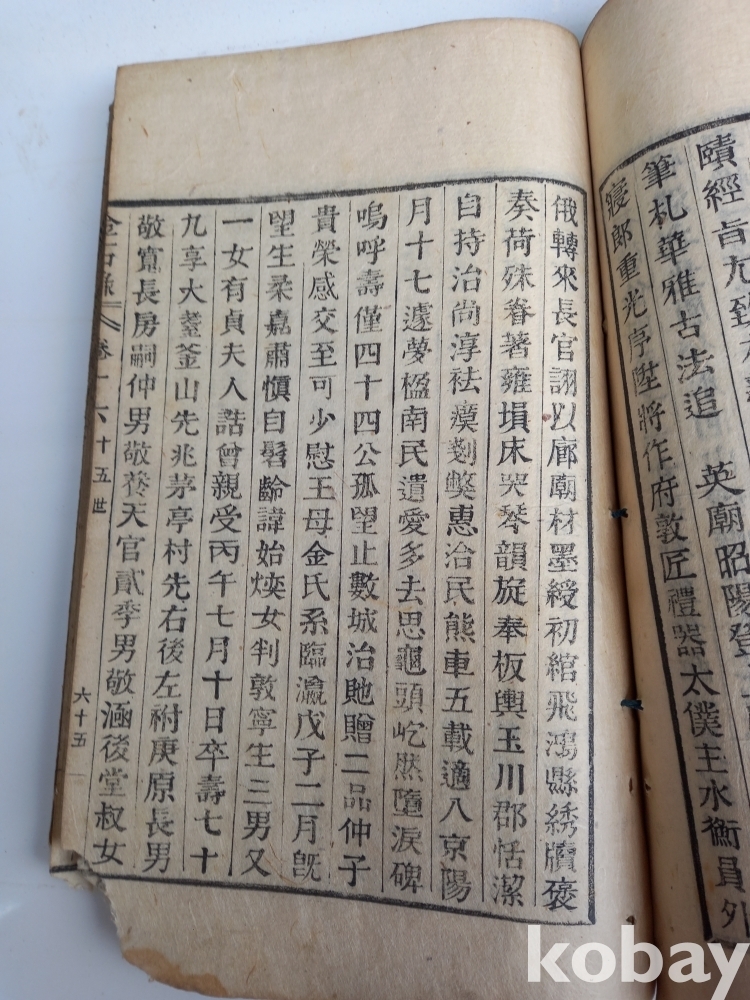 賾經旨尤致
筆札華雅古法追 英廟昭陽登
寢郎重光亭陞將作府敦匠禮器太僕主水衡員外
俄轉來長官詡以廊廟材墨綬初綰飛鴻縣綉牘褒
奏荷殊眷著雍塤床哭琴韻旋奉板輿玉川郡恬潔
自持治尚淳祛瘼剗獘惠洽民熊車五載適八京陽
月十七遽夢楹南民遺愛多去思龜頭屹然墮淚碑
嗚呼壽僅四十四公孤望止數城治貤贈二品仲子
貴榮感交至可少慰王母金氏系臨瀛戊子二月旣
望生柔嘉肅愼自髫齡諱始煐女判敦寧生三男又
一女有貞夫人誥曾親受丙午七月十日卒壽七十
九享大耋釜山先兆茅亭村先右後左祔庚原長男
敬寬長房嗣仲男敬養天官貳季男敬涵後堂叔女
金石錄 卷十六 十五世 六十五
kobay